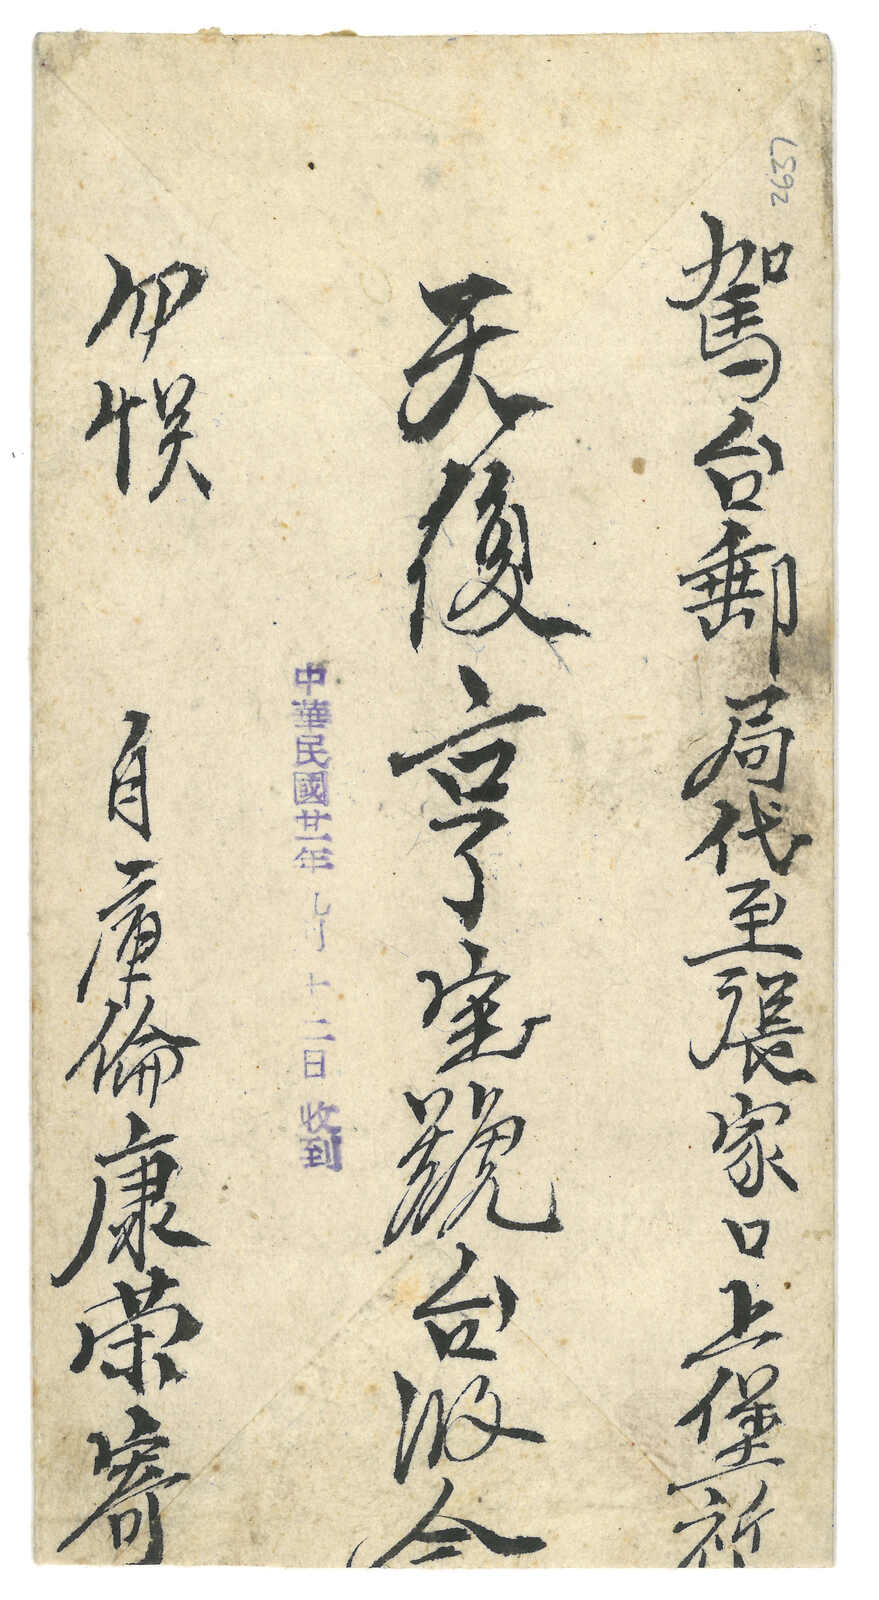 駕台郵局代至張家口上堡祈
天復亨宝號台收
中華民國廿一年九月十二日收到
勿悮
自庫倫康荣寄
2637